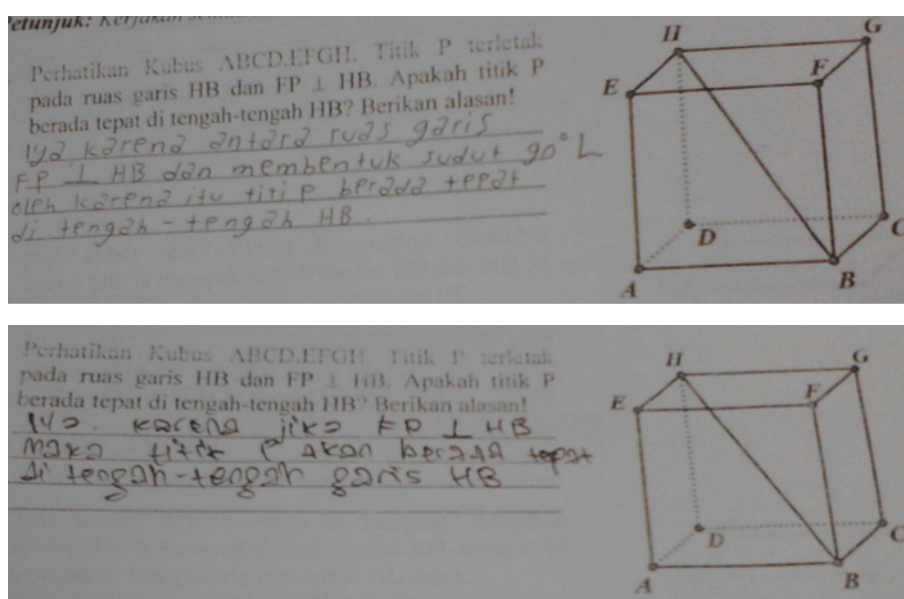 Petunjuk: Kerjakan
Perhatikan Kubus ABCD.EFGH. Titik P terletak
pada ruas garis HB dan FP ⊥ HB. Apakah titik P
berada tepat di tengah-tengah HB? Berikan alasan!
Iya karena antara ruas garis
FP ⊥ HB dan membentuk sudut 90° L
oleh karena itu titi P berada tepat
di tengah - tengah HB.
H
G
E
F
D
C
A
B
Perhatikan Kubus ABCD.EFGH. Titik P terletak
pada ruas garis HB dan FP ⊥ HB. Apakah titik P
berada tepat di tengah-tengah HB? Berikan alasan!
Iya. karena jika FP ⊥ HB
maka titik P akan berada tepat
di tengah-tengah garis HB
H
G
E
F
D
C
A
B